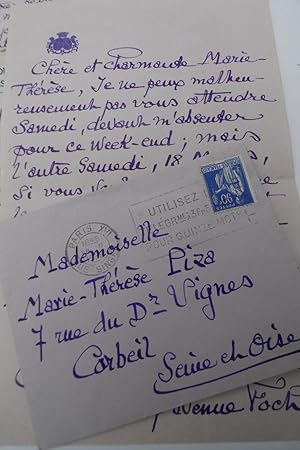 Chère et charmante Marie-
Thérèse, Je ne peux malheu-
reusement pas vous attendre
Samedi, devant m'absenter
pour ce Week-end; mais
l'autre Samedi, 18
Si vous
UTILISEZ
POUR QUINZE MOTS
PARIS XVI
90c
Mademoiselle
Marie-Thérèse Piza
7 rue du Dr Vignes
Corbeil
Seine et Oise
Avenue Foch